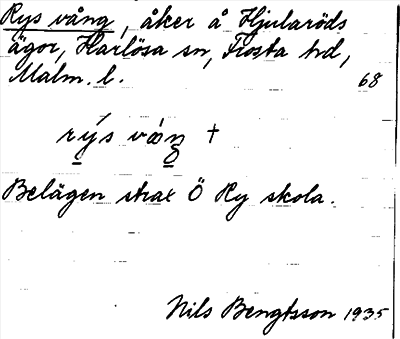 Rys vång, åker å Hjularöds
ägor, Harlösa sn, Frosta hd,
Malm. l.
68
rýs váŋ †
Belägen strax Ö Ry skola.
Nils Bengtsson 1935